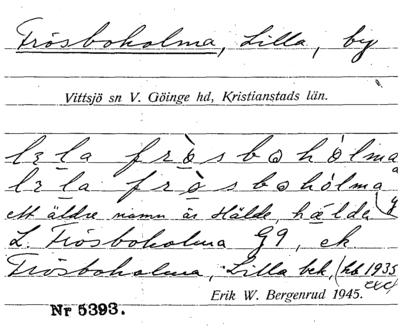 Frösboholma, Lilla, by
Vittsjö sn V. Göinge hd, Kristianstads län.
lɛla fròsbohòlma
lɛla fròsbohólma
ett äldre namn är Hälde, hælda
L. Frösboholma G9, ek
Frösboholma, Lilla bek, (hb 1935
Erik W. Bergenrud 1945. exc)
Nr 5393.